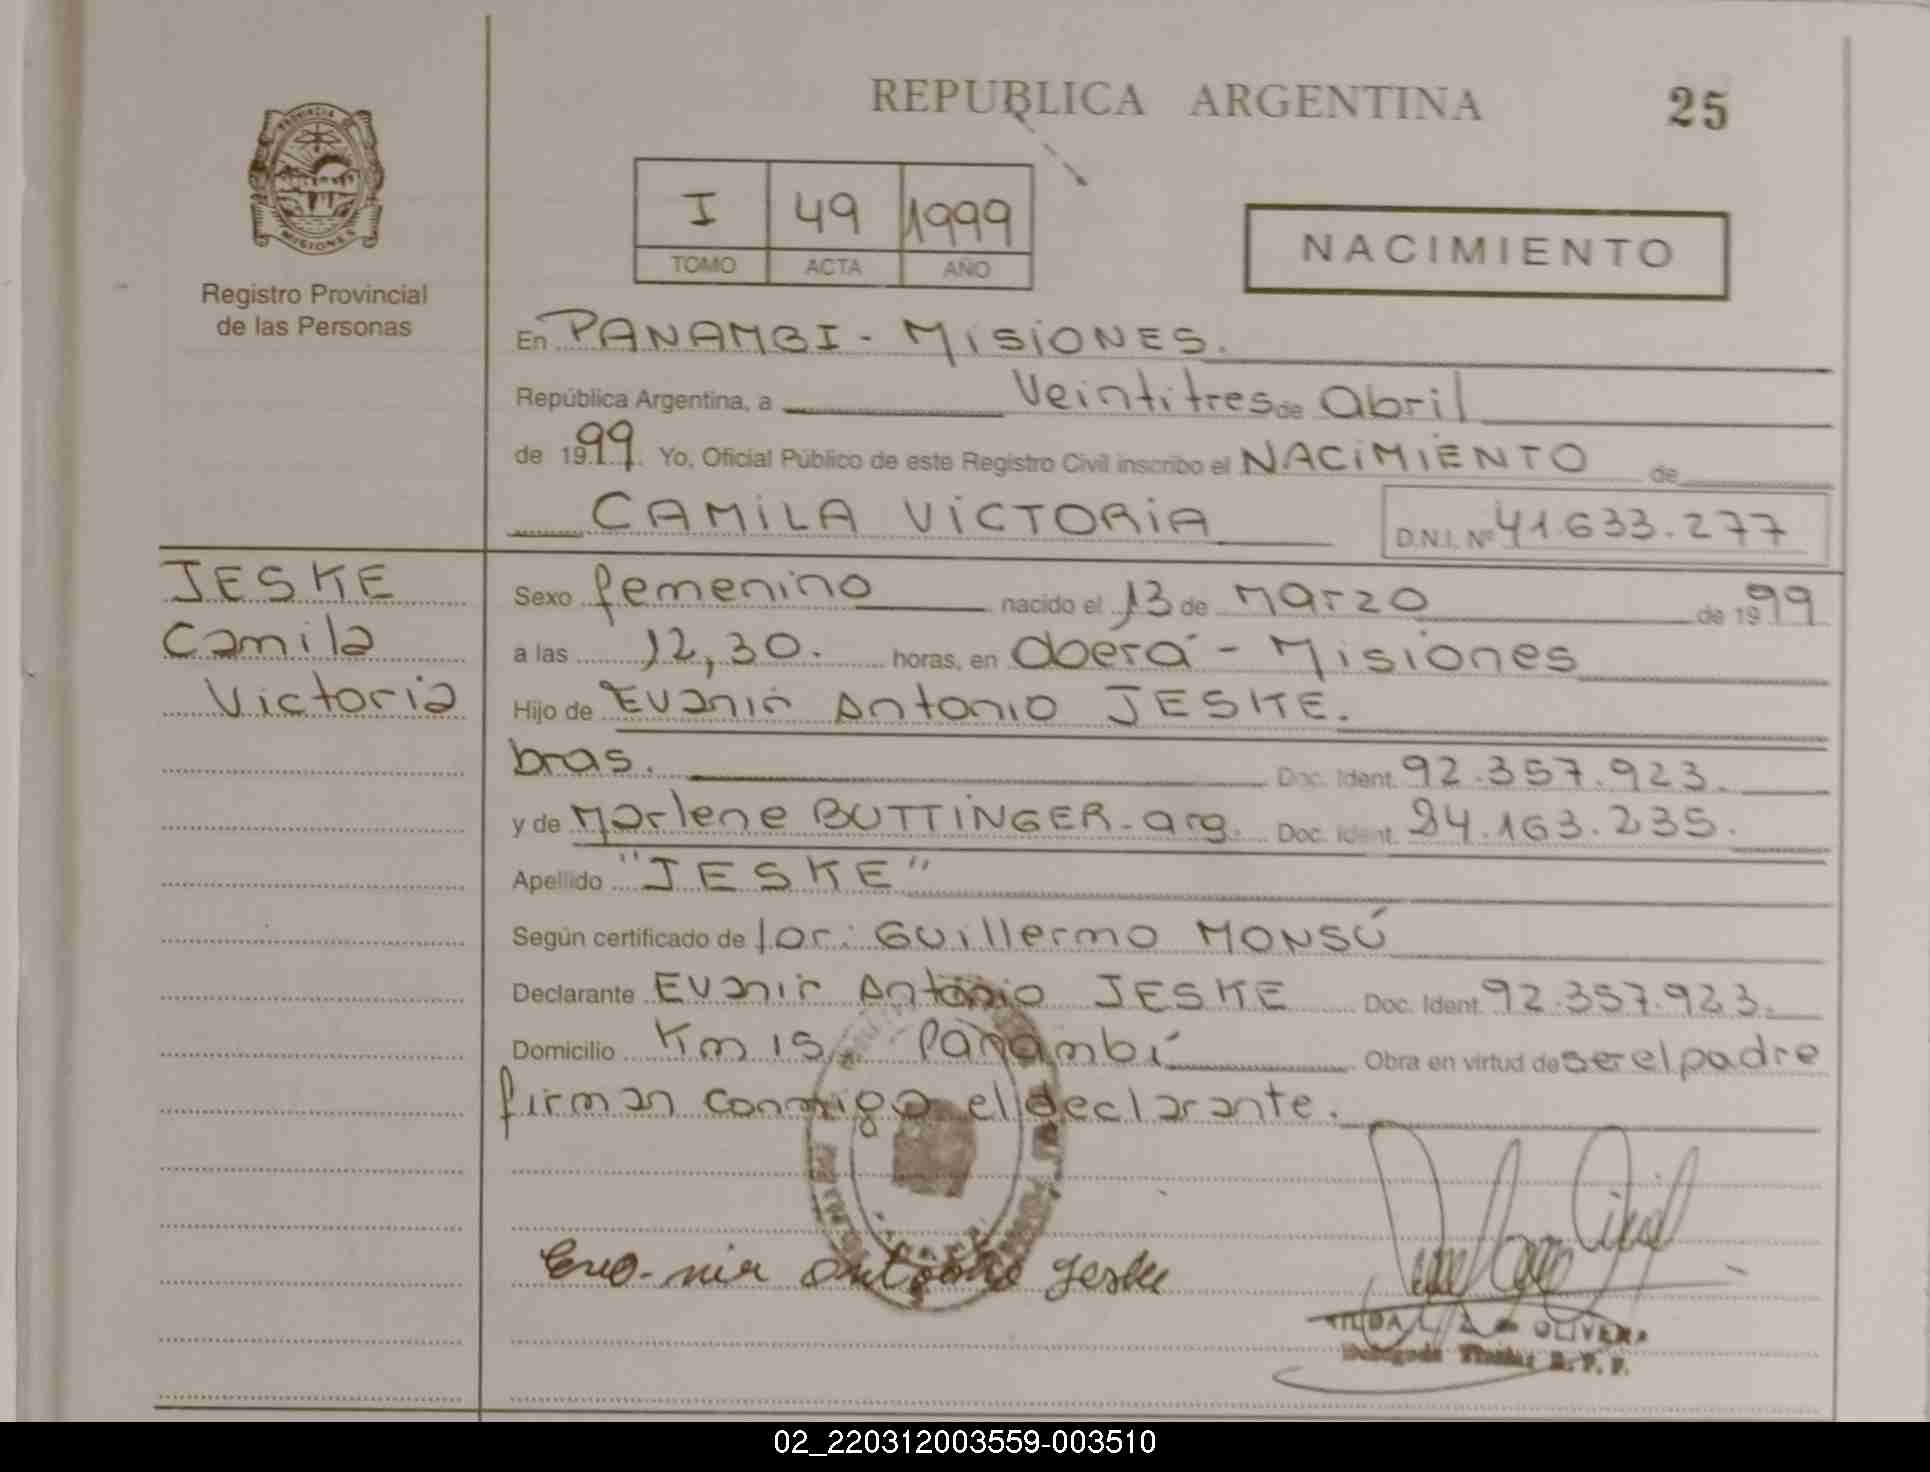 REPUBLICA ARGENTINA
25
PROVINCIA DE
MISIONES
Registro Provincial
de las Personas
I 49 1999
TOMO ACTA AÑO
NACIMIENTO
En PANAMBI - MISIONES.
República Argentina, a Veintitres de abril
de 1999. Yo, Oficial Público de este Registro Civil inscribo el NACIMIENTO de
CAMILA VICTORIA D.N.I. Nº 41.633.277
JESKE
Camila
Victoria
Sexo femenino nacido el 13 de Marzo de 1999
a las 12,30. horas, en Oberá - Misiones
Hijo de Evanir Antonio JESKE.
bras. Doc. Ident. 92.357.923.
y de Marlene BUTTINGER - arg. Doc. Ident. 24.163.235.
Apellido "JESKE"
Según certificado de Guillermo MONSÚ
Declarante Evanir Antonio JESKE Doc. Ident. 92.357.923.
Domicilio Km 15. Panambí Obra en virtud de ser el padre
firman conmigo el declarante.
Eva-nir Antonio Jeske
OLIVERA
Delegada Titular R. P. P.
02_220312003559-003510